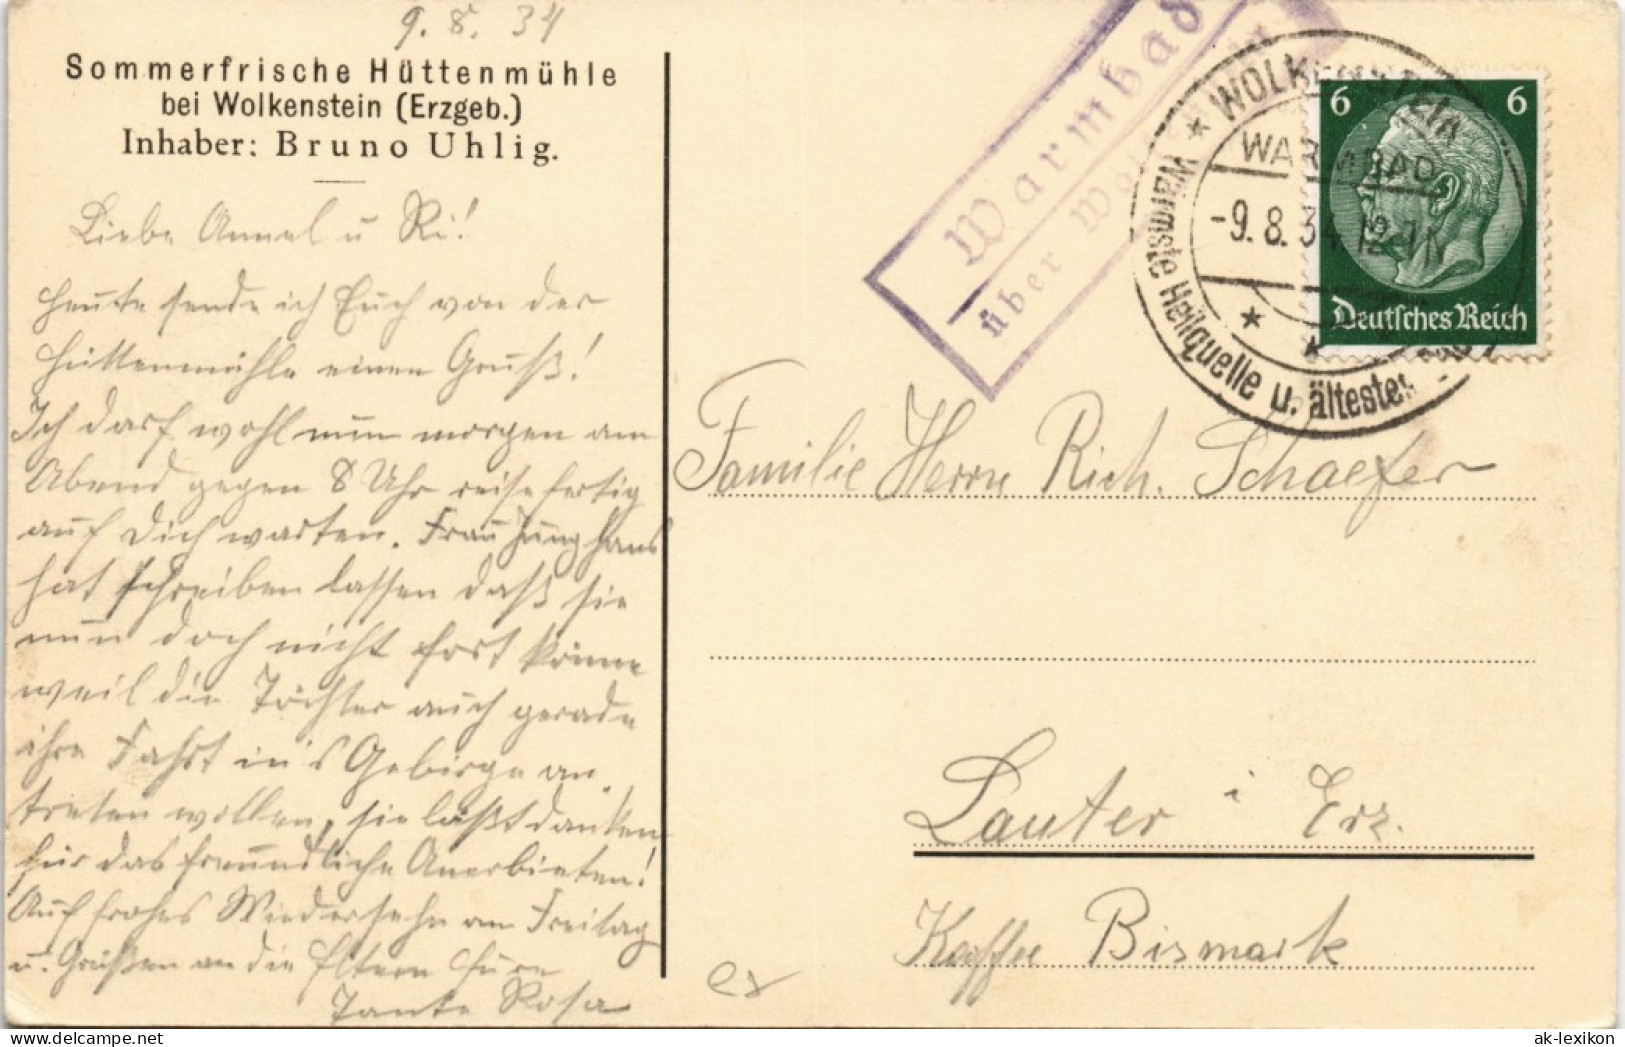 9. 8. 34
Sommerfrische Hüttenmühle
bei Wolkenstein (Erzgeb.)
Inhaber: Bruno Uhlig.
Liebe Annel u Ri!
Heute sende ich Euch von der
Hüttenmühle einen Gruß!
Ich darf wohl nun morgen am
Abend gegen 8 Uhr reisefertig
auf Dich warten. Frau Junghans
hat schreiben lassen daß sie
nun doch nicht fort könne
weil die Töchter auch gerade
ihre Fahrt in's Gebirge an
treten wollen, sie läßt danken
für das freundliche Anerbieten!
Auf frohes Wiedersehn am Freitag
u. Grüßen an die Eltern Eure
Tante Rosa
Warmbad
über
WOLKENSTEIN
WARMBAD
-9.8.34 12-1N
Wärmste Heilquelle u. ältestes
6 6
Deutsches Reich
Familie Herrn Rich. Schaefer
Lauter i Erz.
Kaffee Bismark
ex
ak-lexikon